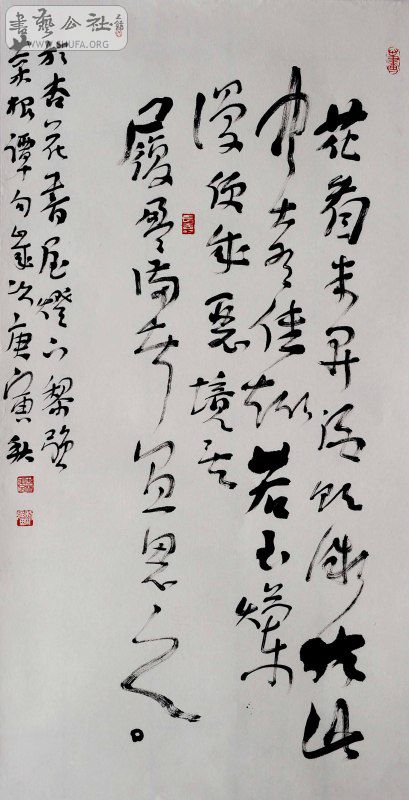 花看半开酒飲微醉此
中大有佳趣若至爛
漫便成惡境矣
履盈滿者宜思之
於杏花書屋燈下黎
菜根譚句歲次庚寅秋
書藝公社
WWW.SHUFA.ORG